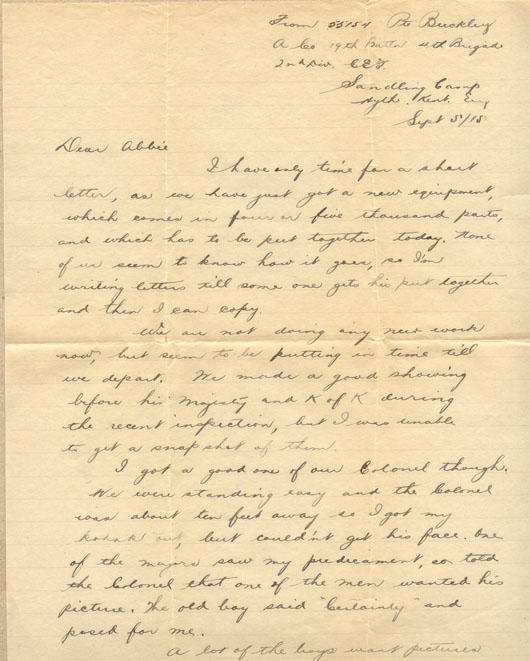 From 55154 Pte Buckley
A Co 19th Battn 4th Brigade
2nd Div. C.E.F.
Sandling Camp
Hythe. Kent. Eng
Sept 5/15
Dear Abbie
I have only time for a short
letter, as we have just got a new equipment,
which comes in four or five thousand parts,
and which has to be put together today. None
of us seem to know how it goes, so I'm
writing letters till some one gets his put together
and then I can copy.
We are not doing any new work
now, but seem to be putting in time till
we depart. We made a good showing
before his Majesty and K of K during
the recent inspection, but I was unable
to get a snapshot of them.
I got a good one of our Colonel though.
We were standing easy and the Colonel
was about ten feet away so I got my
kodak out, but couldn't get his face. One
of the majors saw my predicament, so told
the Colonel that one of the men wanted his
picture. The old boy said "Certainly" and
posed for me.
A lot of the boys want pictures